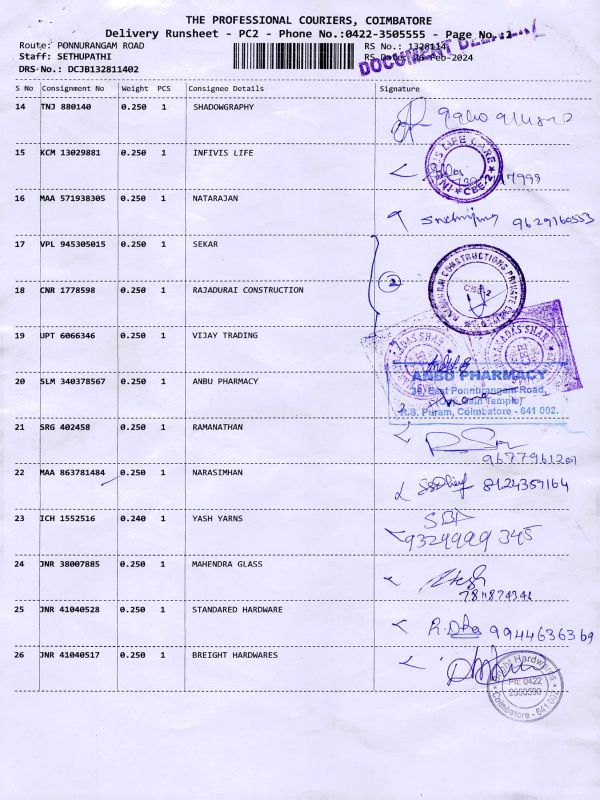 THE PROFESSIONAL COURIERS, COIMBATORE
Delivery Runsheet - PC2 - Phone No.:0422-3505555 - Page No.:2
Route: PONNURANGAM ROAD
RS No.: 1328114
Staff: SETHUPATHI
RS Date: Feb-2024
DRS No.: DCJB132811402
DOCUMENT DELIVERY
S No Consignment No Weight PCS Consignee Details Signature
14 TNJ 880140 0.250 1 SHADOWGRAPHY
15 KCM 13029881 0.250 1 INFIVIS LIFE
LIFE CARE
CBE-2
16 MAA 571938305 0.250 1 NATARAJAN
9629160553
17 VPL 945305015 0.250 1 SEKAR
2
18 CNR 1778598 0.250 1 RAJADURAI CONSTRUCTION
CONSTRUCTIONS PRIVATE
CBE-2
19 UPT 6066346 0.250 1 VIJAY TRADING
20 SLM 340378567 0.250 1 ANBU PHARMACY
ANBU PHARMACY
East Ponnurangam Road,
Temple)
R.S. Puram, Coimbatore - 641 002.
21 SRG 402458 0.250 1 RAMANATHAN
9677961201
22 MAA 863781484 0.250 1 NARASIMHAN
8124357164
23 ICH 1552516 0.240 1 YASH YARNS
9324999345
24 JNR 38007885 0.250 1 MAHENDRA GLASS
25 JNR 41040528 0.250 1 STANDARED HARDWARE
9944636369
26 JNR 41040517 0.250 1 BREIGHT HARDWARES
Hardwares
Ph: 0422
2550590
Coimbatore - 641 002